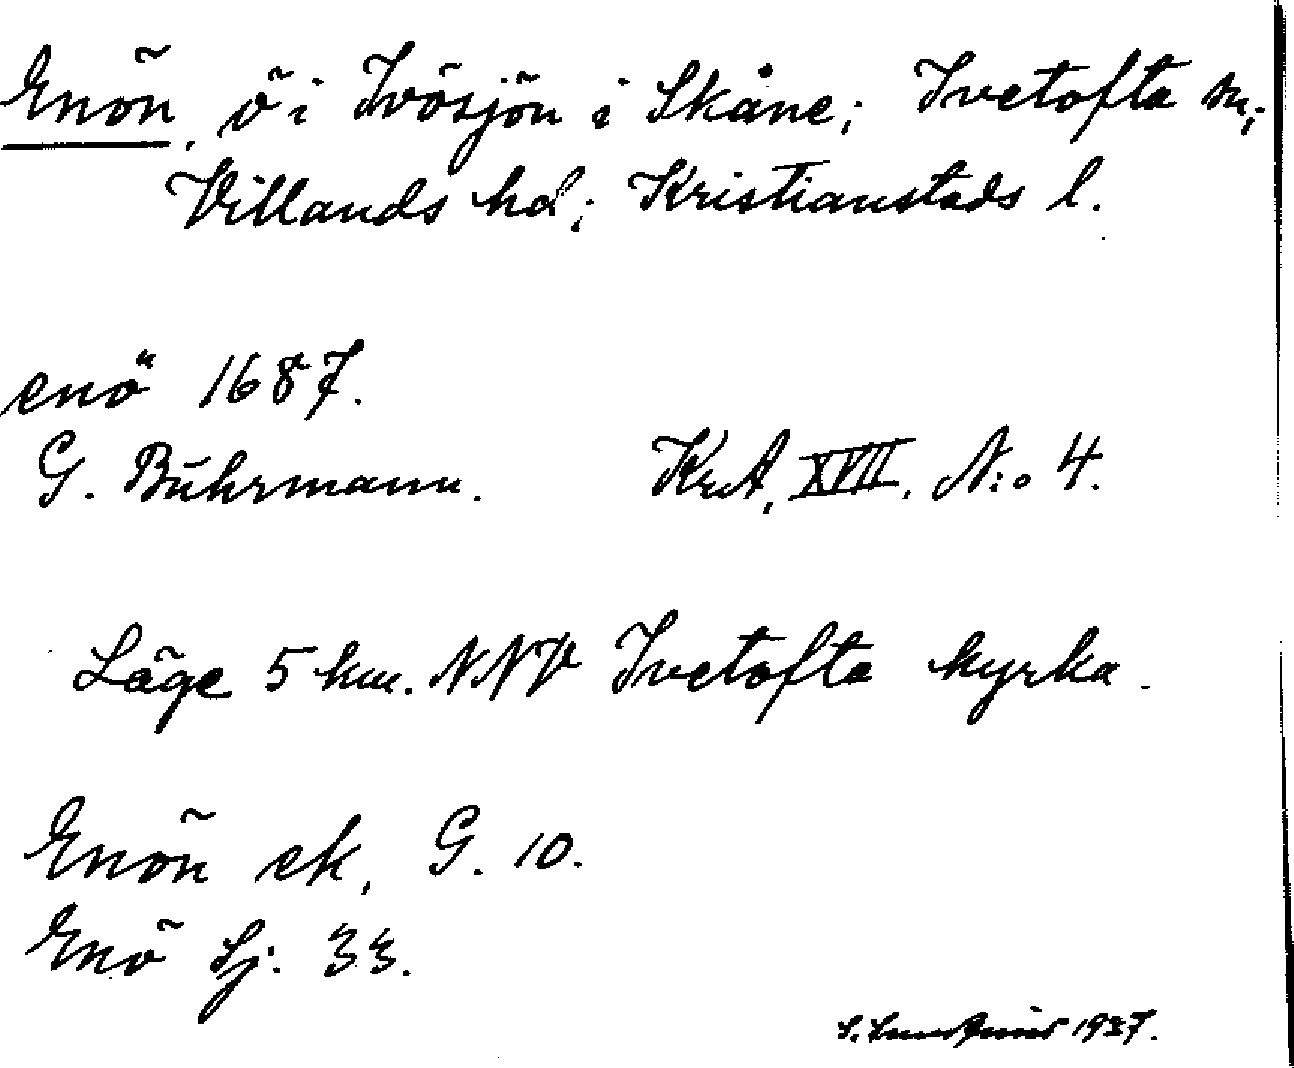 Enön, ö i Ivösjön i Skåne; Ivetofta sn;
Villands hd; Kristianstads l.
enö 1687.
G. Buhrmann. KrA, XVII. N:o 4.
Läge 5 km. NNV Ivetofta kyrka.
Enön ek, G. 10.
Enö Sj. 33.
1937.